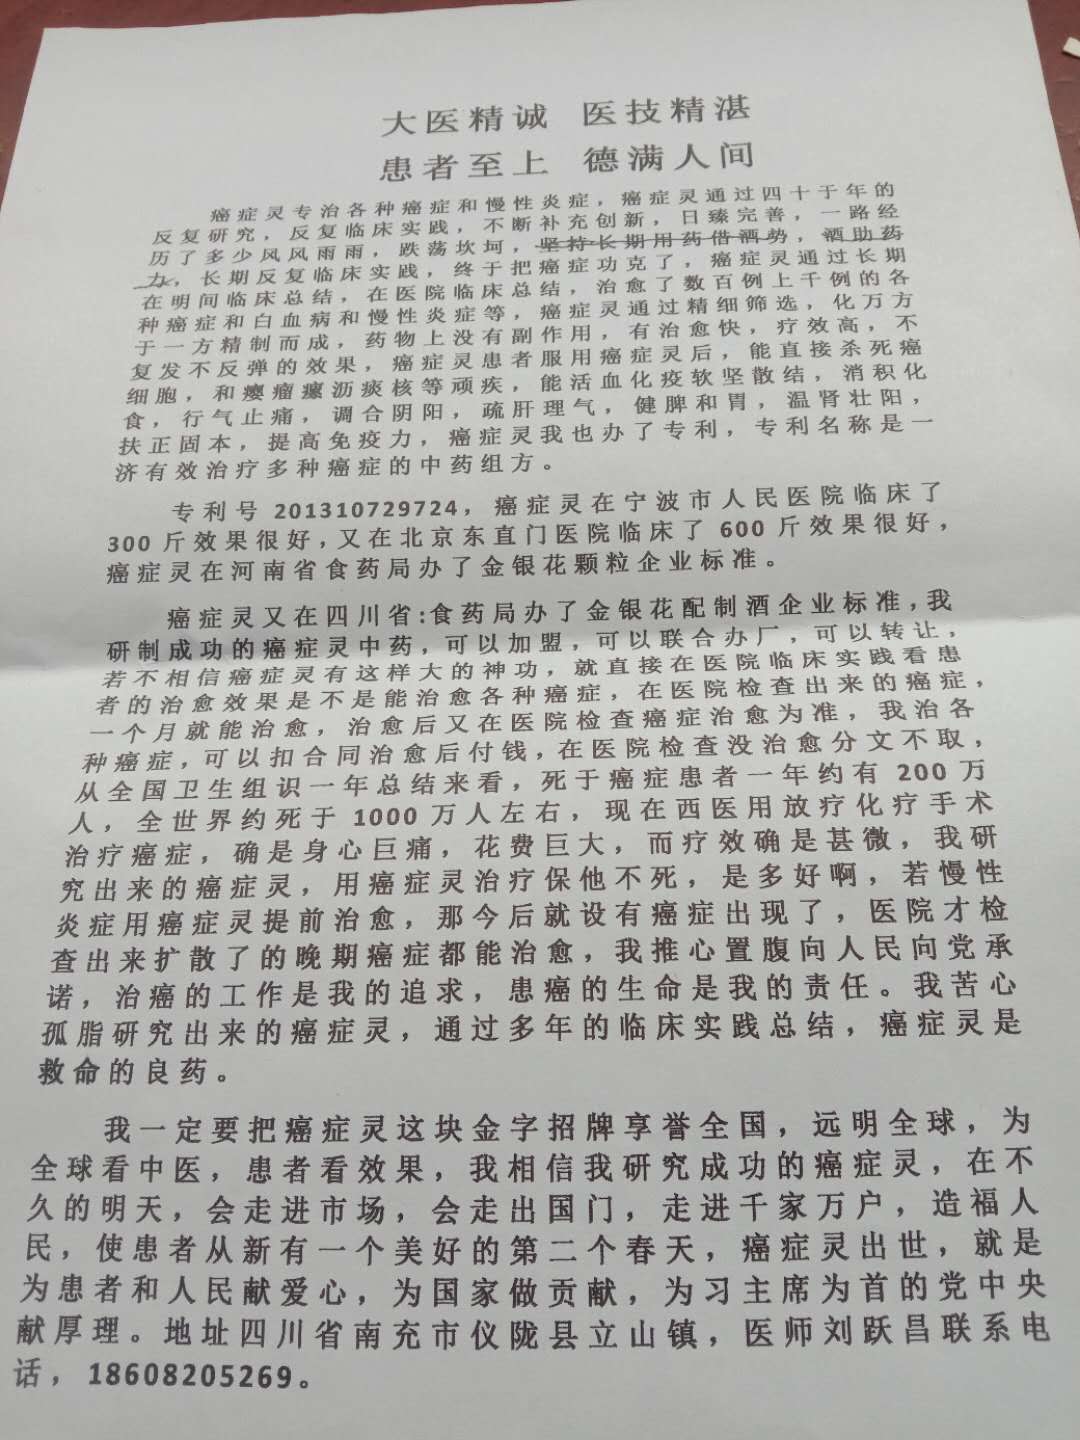 大医精诚 医技精湛
患者至上 德满人间
癌症灵专治各种癌症和慢性炎症，癌症灵通过四十于年的
反复研究，反复临床实践，不断补充创新，日臻完善，一路经
历了多少风风雨雨，跌荡坎坷，坚持长期用药借酒势，酒助药
力，长期反复临床实践，终于把癌症功克了，癌症灵通过长期
在明间临床总结，在医院临床总结，治愈了数百例上千例的各
种癌症和白血病和慢性炎症等，癌症灵通过精细筛选，化万方
于一方精制而成，药物上没有副作用，有治愈快，疗效高，不
复发不反弹的效果，癌症灵患者服用癌症灵后，能直接杀死癌
细胞，和瘿瘤瘰沥痰核等顽疾，能活血化疫软坚散结，消积化
食，行气止痛，调合阴阳，疏肝理气，健脾和胃，温肾壮阳，
扶正固本，提高免疫力，癌症灵我也办了专利，专利名称是一
济有效治疗多种癌症的中药组方。
专利号 201310729724，癌症灵在宁波市人民医院临床了
300 斤效果很好，又在北京东直门医院临床了 600 斤效果很好，
癌症灵在河南省食药局办了金银花颗粒企业标准。
癌症灵又在四川省:食药局办了金银花配制酒企业标准，我
研制成功的癌症灵中药，可以加盟，可以联合办厂，可以转让，
若不相信癌症灵有这样大的神功，就直接在医院临床实践看患
者的治愈效果是不是能治愈各种癌症，在医院检查出来的癌症，
一个月就能治愈，治愈后又在医院检查癌症治愈为准，我治各
种癌症，可以扣合同治愈后付钱，在医院检查没治愈分文不取，
从全国卫生组识一年总结来看，死于癌症患者一年约有 200 万
人，全世界约死于 1000 万人左右，现在西医用放疗化疗手术
治疗癌症，确是身心巨痛，花费巨大，而疗效确是甚微，我研
究出来的癌症灵，用癌症灵治疗保他不死，是多好啊，若慢性
炎症用癌症灵提前治愈，那今后就设有癌症出现了，医院才检
查出来扩散了的晚期癌症都能治愈，我推心置腹向人民向党承
诺，治癌的工作是我的追求，患癌的生命是我的责任。我苦心
孤脂研究出来的癌症灵，通过多年的临床实践总结，癌症灵是
救命的良药。
我一定要把癌症灵这块金字招牌享誉全国，远明全球，为
全球看中医，患者看效果，我相信我研究成功的癌症灵，在不
久的明天，会走进市场，会走出国门，走进千家万户，造福人
民，使患者从新有一个美好的第二个春天，癌症灵出世，就是
为患者和人民献爱心，为国家做贡献，为习主席为首的党中央
献厚理。地址四川省南充市仪陇县立山镇，医师刘跃昌联系电
话，18608205269。